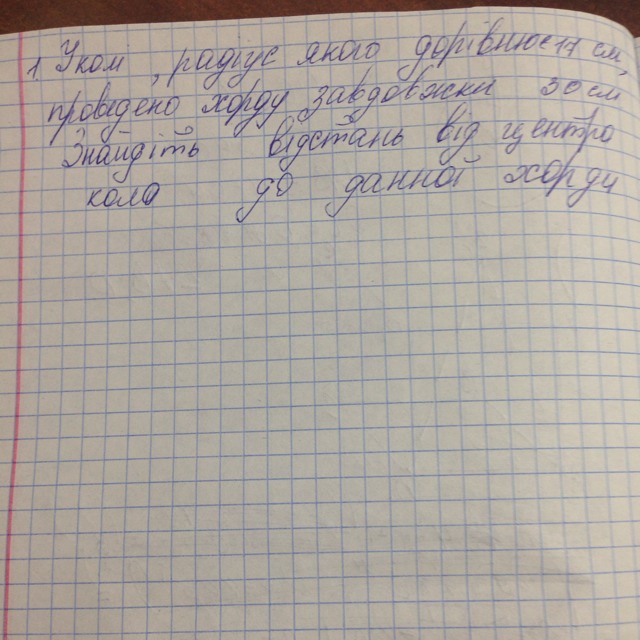 1 У колі, радіус якого дорівнює 17 см,
проведено хорду завдовжки 30 см
Знайдіть відстань від центра
кола до данної хорди